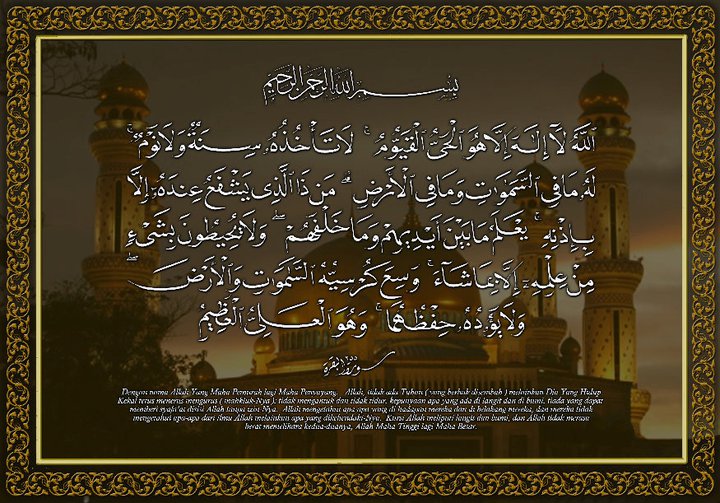 بِسْمِ اللَّهِ الرَّحْمَٰنِ الرَّحِيمِ
اللَّهُ لَا إِلَٰهَ إِلَّا هُوَ الْحَيُّ الْقَيُّومُ ۚ لَا تَأْخُذُهُ سِنَةٌ وَلَا نَوْمٌ ۚ
لَهُ مَا فِي السَّمَٰوَاتِ وَمَا فِي الْأَرْضِ ۗ مَنْ ذَا الَّذِي يَشْفَعُ عِنْدَهُ إِلَّا
بِإِذْنِهِ ۚ يَعْلَمُ مَا بَيْنَ أَيْدِيهِمْ وَمَا خَلْفَهُمْ ۖ وَلَا يُحِيطُونَ بِشَيْءٍ
مِنْ عِلْمِهِ إِلَّا بِمَا شَاءَ ۚ وَسِعَ كُرْسِيُّهُ السَّمَٰوَاتِ وَالْأَرْضَ ۖ
وَلَا يَئُودُهُ حِفْظُهُمَا ۚ وَهُوَ الْعَلِيُّ الْعَظِيمُ
سورة البقرة
Dengan nama Allah Yang Maha Pemurah lagi Maha Penyayang. Allah, tidak ada Tuhan ( yang berhak disembah ) melainkan Dia Yang Hidup
Kekal terus menerus mengurus ( makhluk-Nya ); tidak mengantuk dan tidak tidur, kepunyaan apa yang ada di langit dan di bumi, tiada yang dapat
memberi syafa'at disisi Allah tanpa izin-Nya. Allah mengetahui apa-apa yang di hadapan mereka dan di belakang mereka, dan mereka tidak
mengetahui apa-apa dari ilmu Allah melainkan apa yang dikehendaki-Nya. Kursi Allah meliputi langit dan bumi, dan Allah tidak merasa
berat memelihara kedua-duanya, Allah Maha Tinggi lagi Maha Besar.